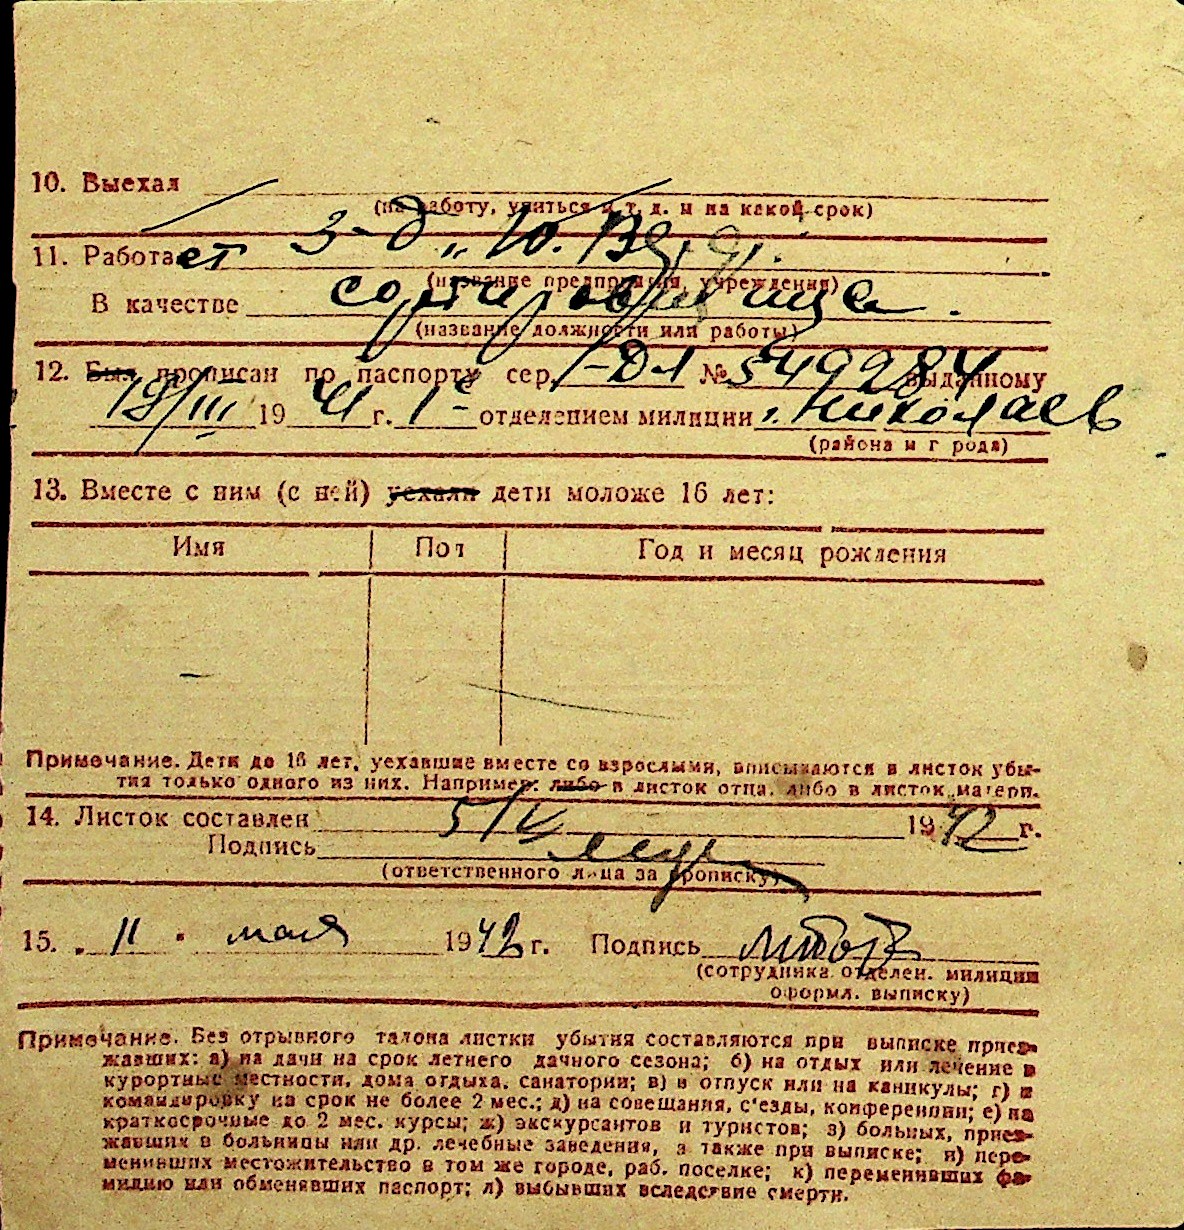 10. Выехал
(на работу, учиться и т. д. и на какой срок)
11. Работает з-д „Ю.
(название предприятия, учреждения)
В качестве сортировщица.
(название должности или работы)
12. Был прописан по паспорту сер. I-ДЛ № 549284 выданному
19/III 1941 г. 1е отделением милиции г. Николаев
(района и города)
13. Вместе с ним (с ней) уехали дети моложе 16 лет:
Имя Пол Год и месяц рождения
Примечание. Дети до 16 лет, уехавшие вместе со взрослыми, вписываются в листок убы-
тия только одного из них. Например: либо в листок отца, либо в листок матери.
14. Листок составлен 5/V 1942 г.
Подпись
(ответственного лица за прописку)
15. „11" мая 1942 г. Подпись
(сотрудника отделен. милиции
оформл. выписку)
Примечание. Без отрывного талона листки убытия составляются при выписке приез-
жавших: а) на дачи на срок летнего дачного сезона; б) на отдых или лечение в
курортные местности, дома отдыха, санатории; в) в отпуск или на каникулы; г) в
командировку на срок не более 2 мес.; д) на совещания, с'езды, конференции; е) на
краткосрочные до 2 мес. курсы; ж) экскурсантов и туристов; з) больных, приез-
жавших в больницы или др. лечебные заведения, а также при выписке; и) пере-
менивших местожительство в том же городе, раб. поселке; к) переменивших фа-
милию или обменявших паспорт; л) выбывших вследствие смерти.